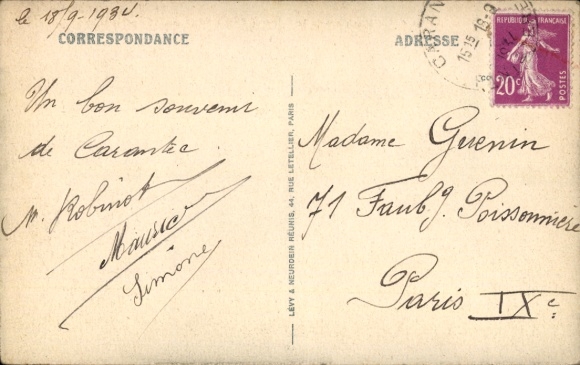 le 18/9-1934.
CORRESPONDANCE
Un bon souvenir
de Carantec
M. Robinot
Maurice
Simone
LÉVY & NEURDEIN RÉUNIS, 44, RUE LETELLIER, PARIS
ADRESSE
CARAN
1515 18-9
RÉPUBLIQUE FRANÇAISE
20c
POSTES
Madame Guenin
71 Faubg. Poissonnière
Paris IXe